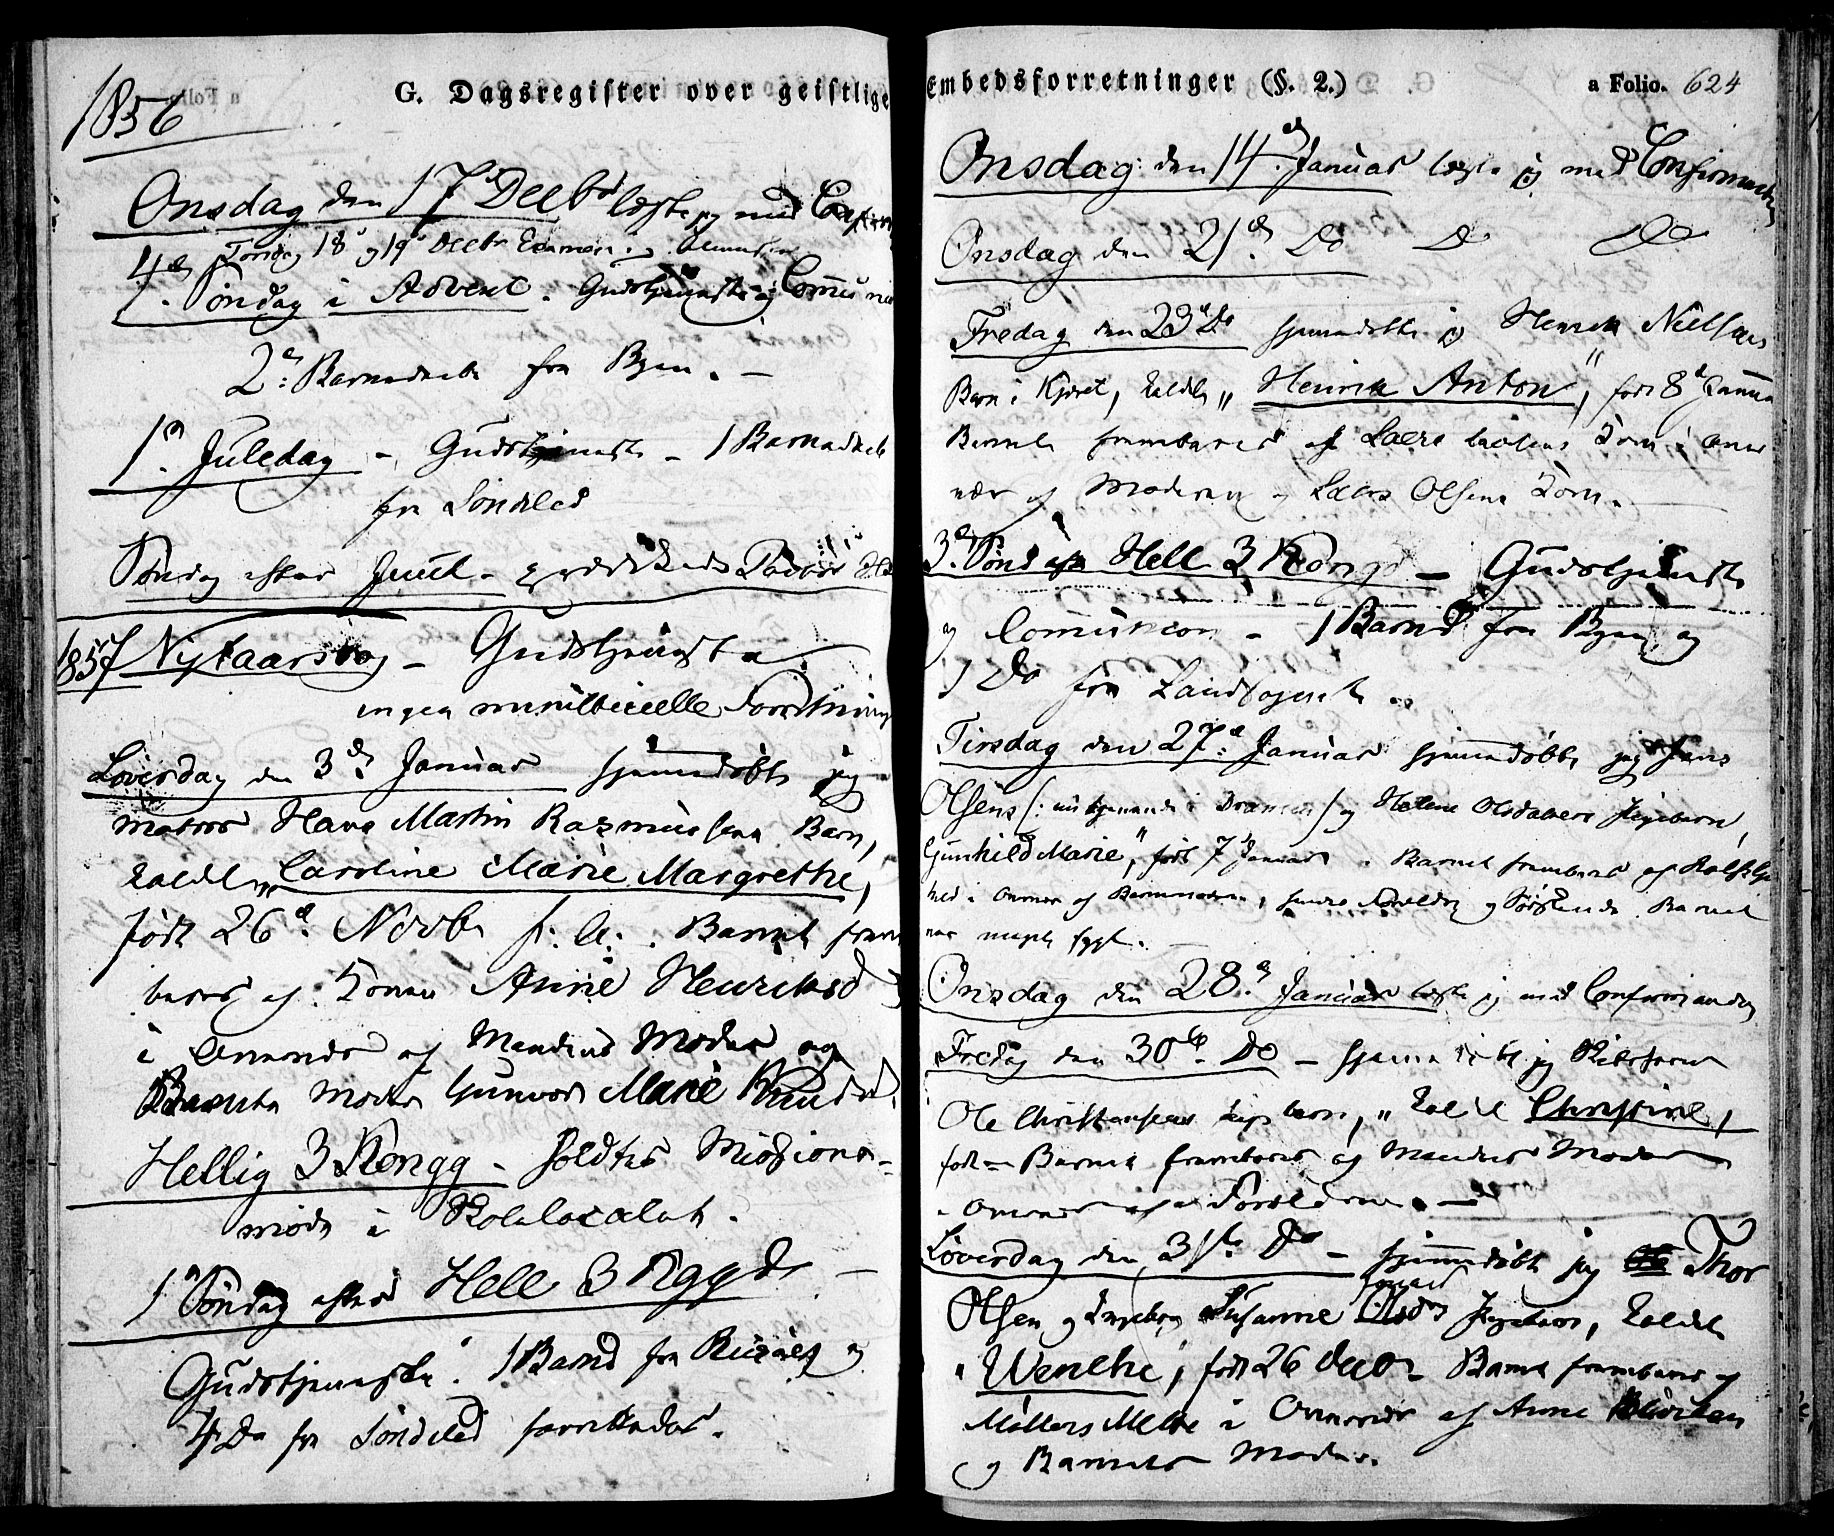 1856
G. Dagsregister over geistlige
Onsdag den 17de Decbr læste jeg med Conf
Torsdag 18d og 19d Decbr Examen og
4de Søndag i Advent. Gudstjeneste og Communi
2de Barnedaab fra Byen. —
1ste Juledag – Gudstjeneste – 1 Barnedaab
fra Søndeled
Søndag efter Juul – prædikede Pastor
1857 Nytaarsdag – Gudstjeneste
ingen ministerielle Forretninger
Løverdag den 3de Januar hjemmedøbte jeg
Matros Hans Martin Rasmussens Barn,
kaldet „Caroline Marie Margrethe,
født 26de Novbr f: A: . Barnet frem
bares af Konen Anne Henriksd
i Overvær af Mandens Moder og
Barnets Moder Gunvor Marie Knudsd.
Hellig 3 Kongg – holdtes Missions-
møde i Skolelocalet.
1ste Søndag efter Hell 3 Kggd –
Gudstjeneste. 1 Barnd fra Risøer og
4 Do fra Søndeled forrettedes.
Embedsforretninger (§. 2.)
a Folio. 624
Onsdag den 14de Januar læste jeg med Confirmanden
Onsdag den 21de Do Do Do
Fredag den 23de Do hjemmedøbte jeg Henrik Nielsens
Barn i Kjøret, kaldet „Henrik Anton", født 8de Janua
Barnet frembares af Lars Olsens Kone i Over
vær af Moderen og Lars Olsens Kone.
3de Sønd eft Hell 3 Kongr – Gudstjeneste
og Comunion – 1 Barnd fra Byen og
1 Do fra Landsognet.
Tirsdag den 27de Januar hjemmedøbte jeg Jens
Olsens (: i Drammen) og Helene Olsdatters Pigebarn,
Gunhild Marie", født 7 Januar. Barnet frembares af
hed i Overvær af Barnemoderen, Barnet
var meget sygt. —
Onsdag den 28de Januar læste jeg med Confirmanden
Fredag den 30te Do – hjemmedøbte jeg
Ole Christensens Pigebarn, „kaldet Christine,
født – Barnet frembares af Mandens Moder
i Overvær af Forældrene. —
Løverdag den 31te Do – hjemmedøbte jeg Thor
Olsen og Ingeborg Susanne Olsd Pigebarn, kaldet
„Wencke", født 26 Decbr Barnet frembares af
Møllers Mette i Overvær af Anne
og Barnets Moder.